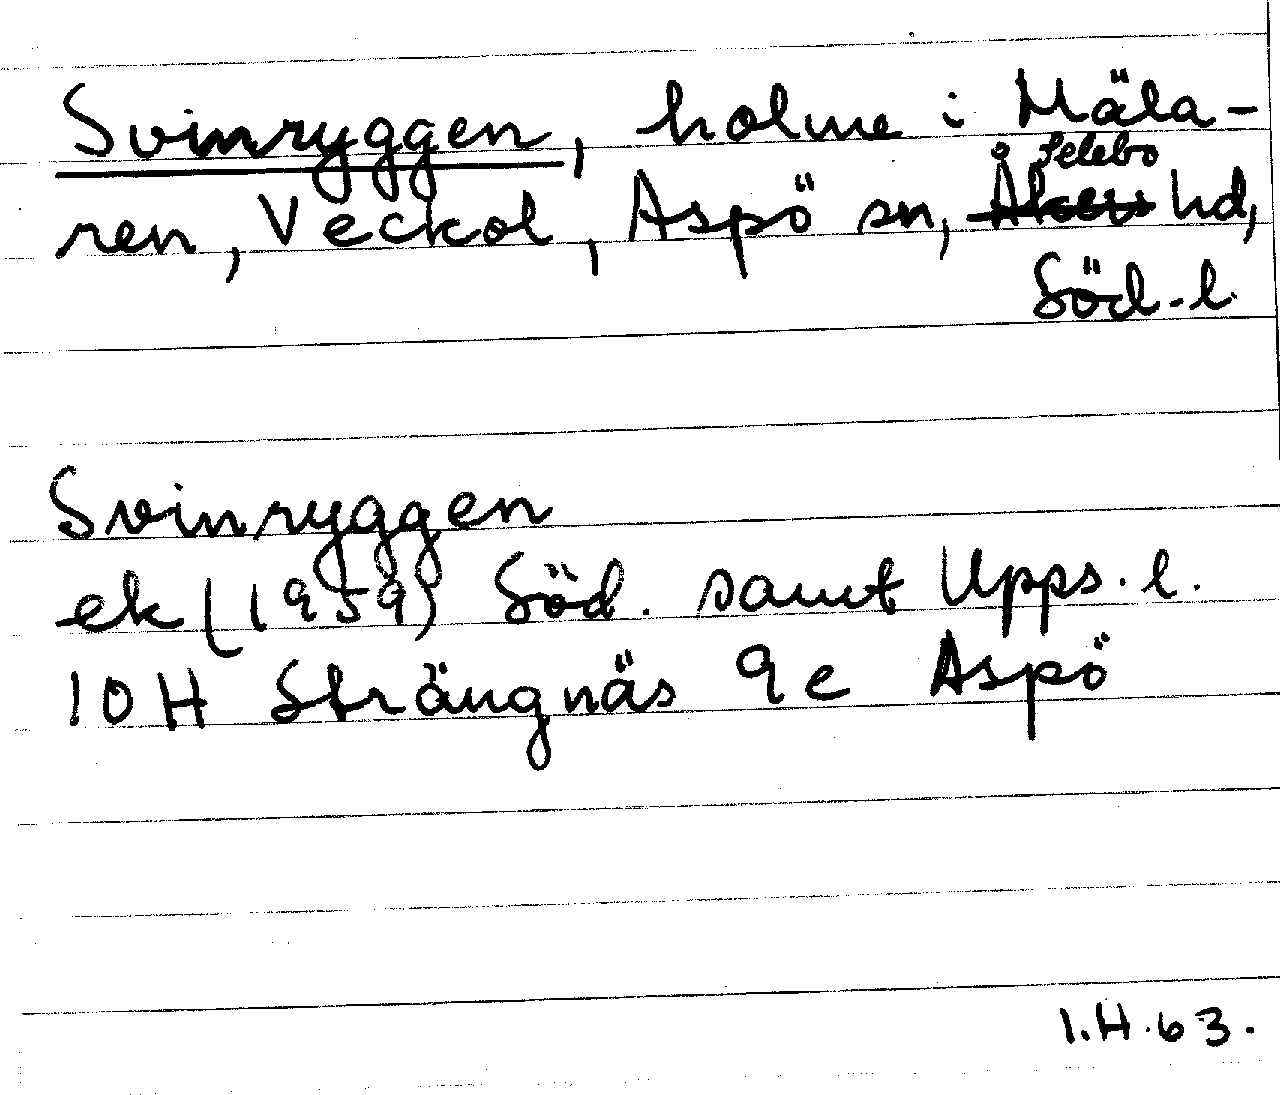 Svinryggen, holme i Mäla-
Selebo
ren, Veckol, Aspö sn, Åkers hd,
Söd. l.
Svinryggen
ek (1959) Söd. samt Upps. l.
10H Strängnäs 9e Aspö
I.H.63.